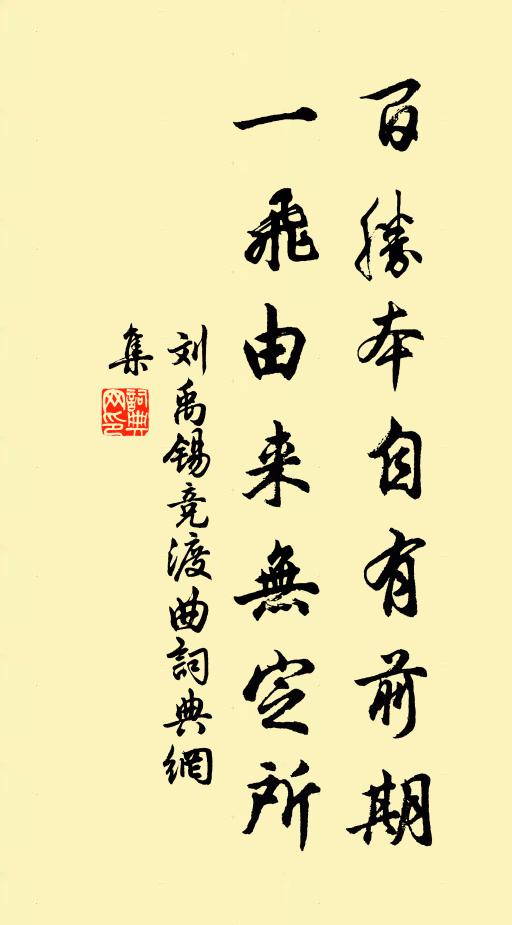 百勝本自有前期
一飛由来無定所
刘禹錫竞渡曲詞典網
集
詞典
网印